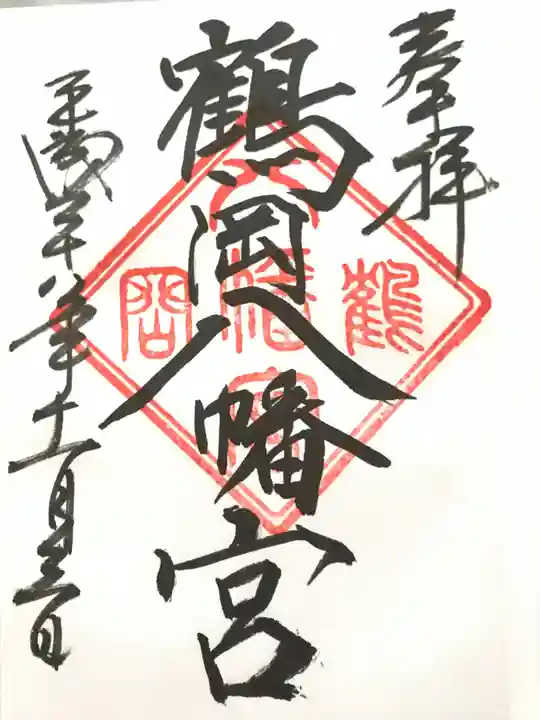 奉拝
鶴岡八幡宮
鶴
八幡宮
岡
平成
年十一月三日